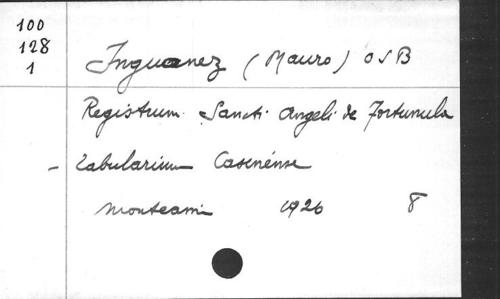 100
128
1
Inguanez (Mauro) OSB
Registrum Sancti Angeli de Fortunula
- Tabularium Casinénse
Montecassi 1926 8